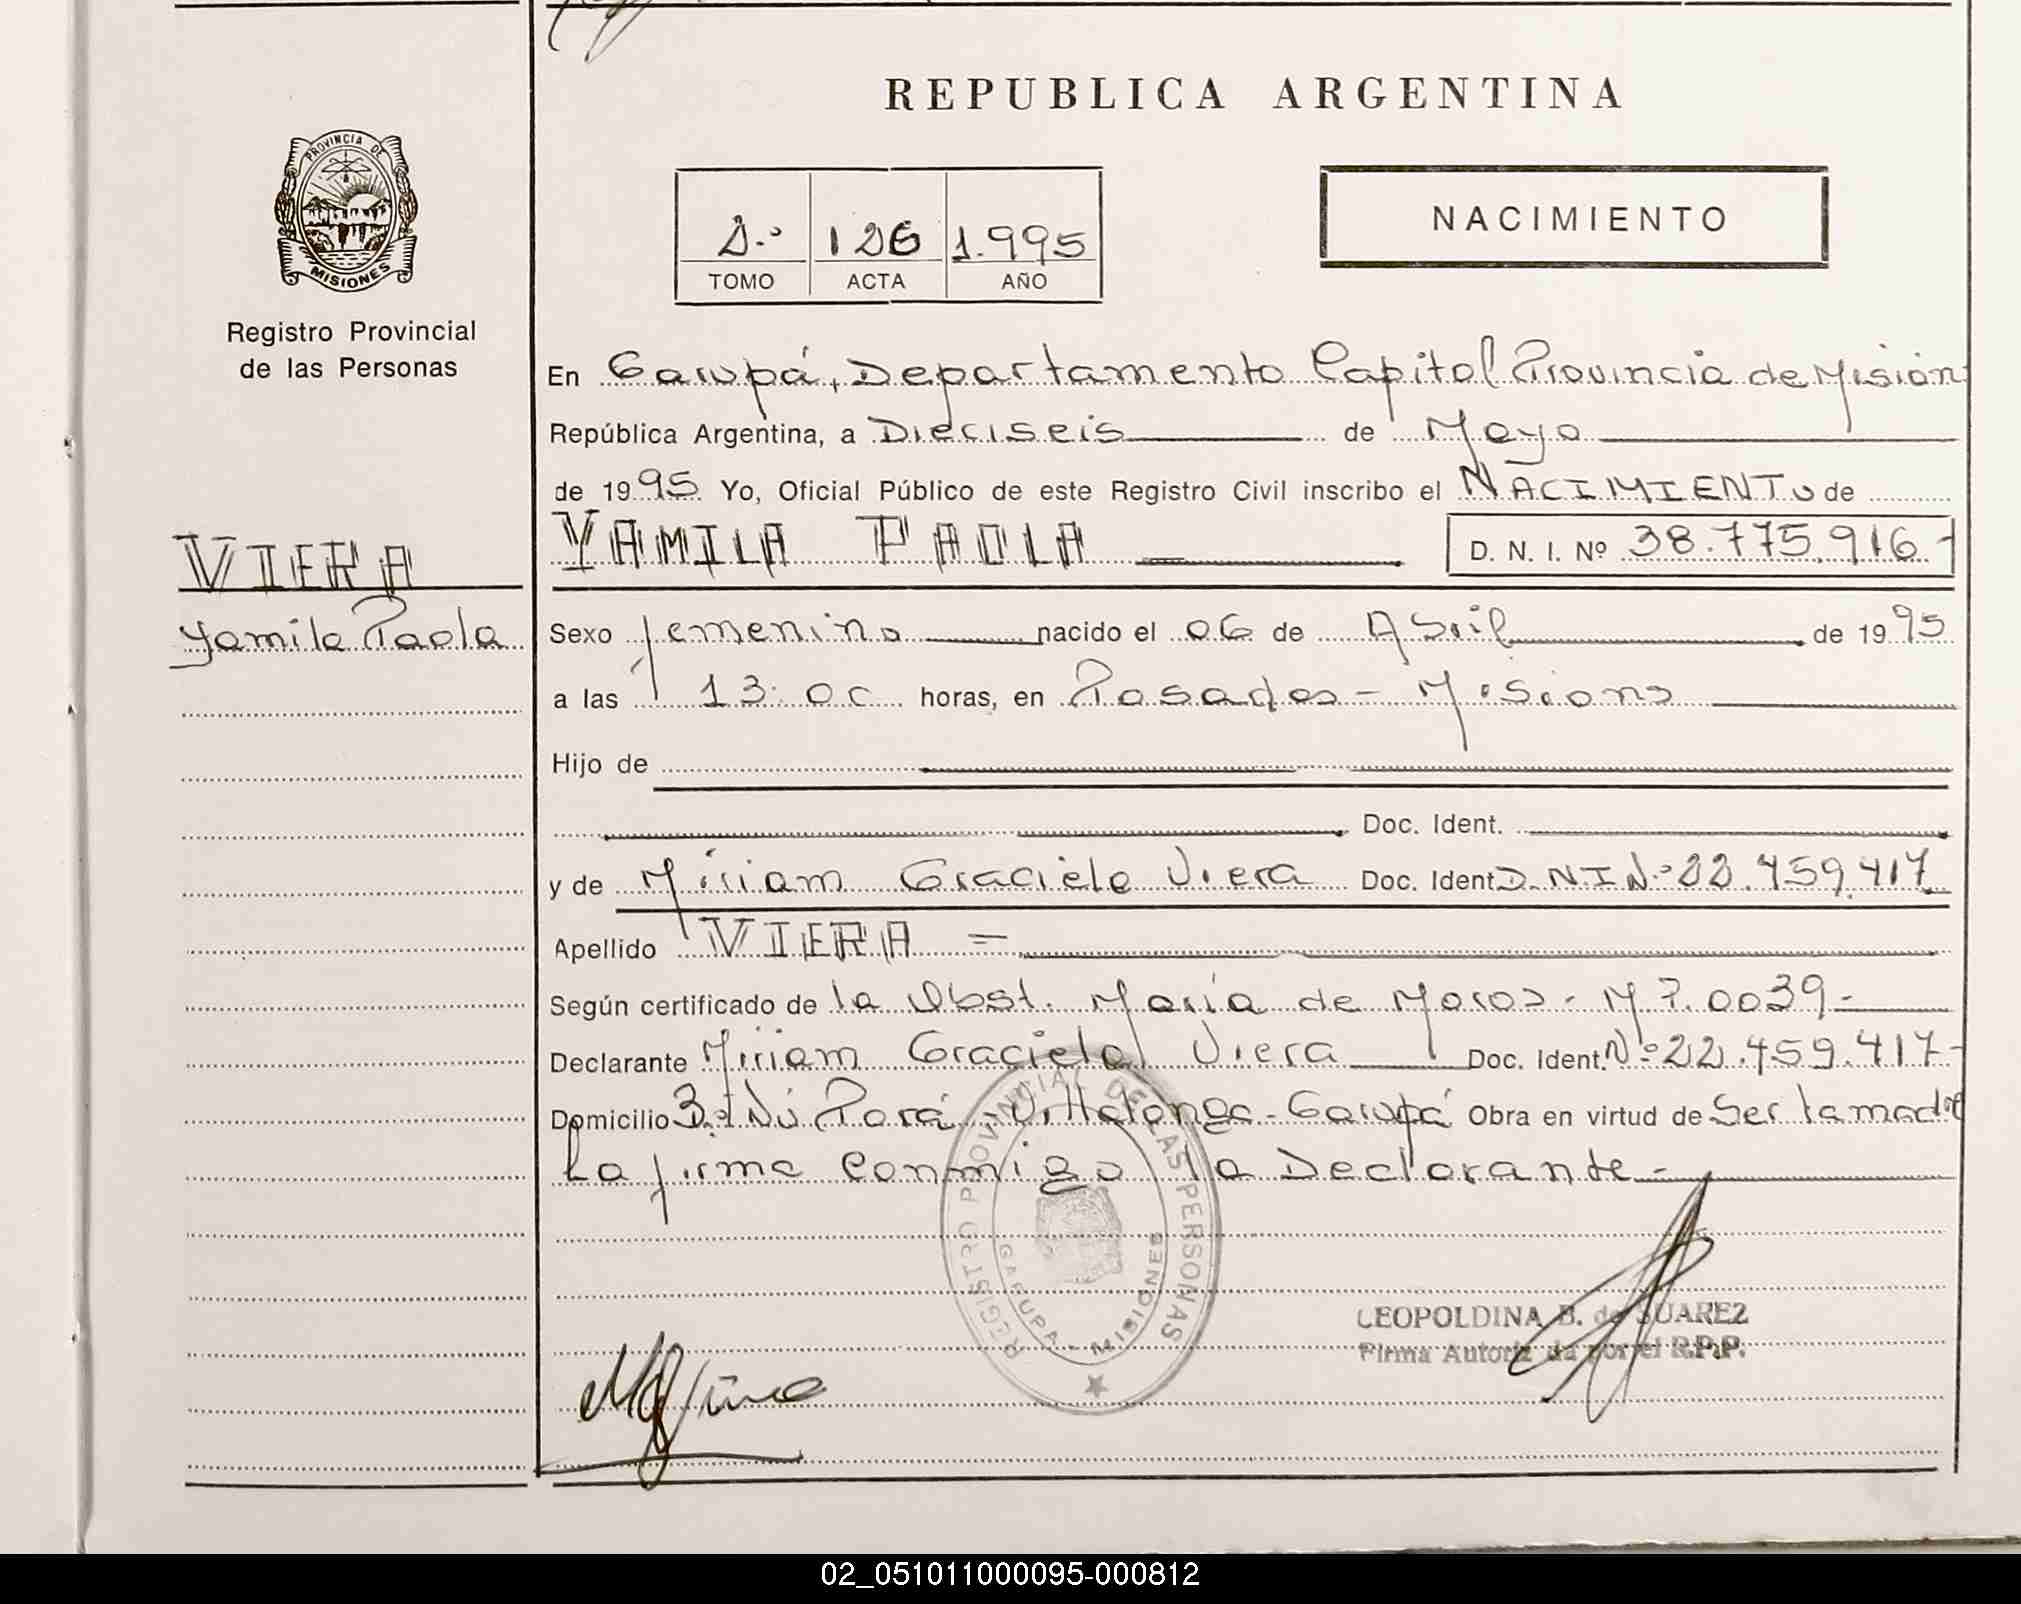 REPUBLICA ARGENTINA
PROVINCIA DE
MISIONES
Registro Provincial
de las Personas
NACIMIENTO
126 1.995
TOMO ACTA AÑO
En Garupá, Departamento Capital Provincia de Mision
República Argentina, a Dieciseis de Mayo
de 1995 Yo, Oficial Público de este Registro Civil inscribo el NACIMIENTO de
VIERA
YAMILA PAOLA D. N. I. Nº 38.775.916-
Yamila Paola
Sexo femenino nacido el 06 de Abril de 1995
a las 13:00 horas, en Posadas - Misions
Hijo de
Doc. Ident.
y de Miriam Graciela Viera Doc. Ident D.N.I Nº 22.459.417
Apellido VIERA =
Según certificado de la Obst. María de Moros - M P. 0039-
Declarante Miriam Graciela Viera Doc. Ident. Nº 22.459.417-
Domicilio Bº Ñú Porá Villalonga - Garupá Obra en virtud de Ser la madre
La firma conmigo la Declarante -
REGISTRO PROVINCIAL DE LAS PERSONAS
GARUPA - MISIONES
LEOPOLDINA B. de SUAREZ
Firma Autoriz da por el R.P.P.
02_051011000095-000812